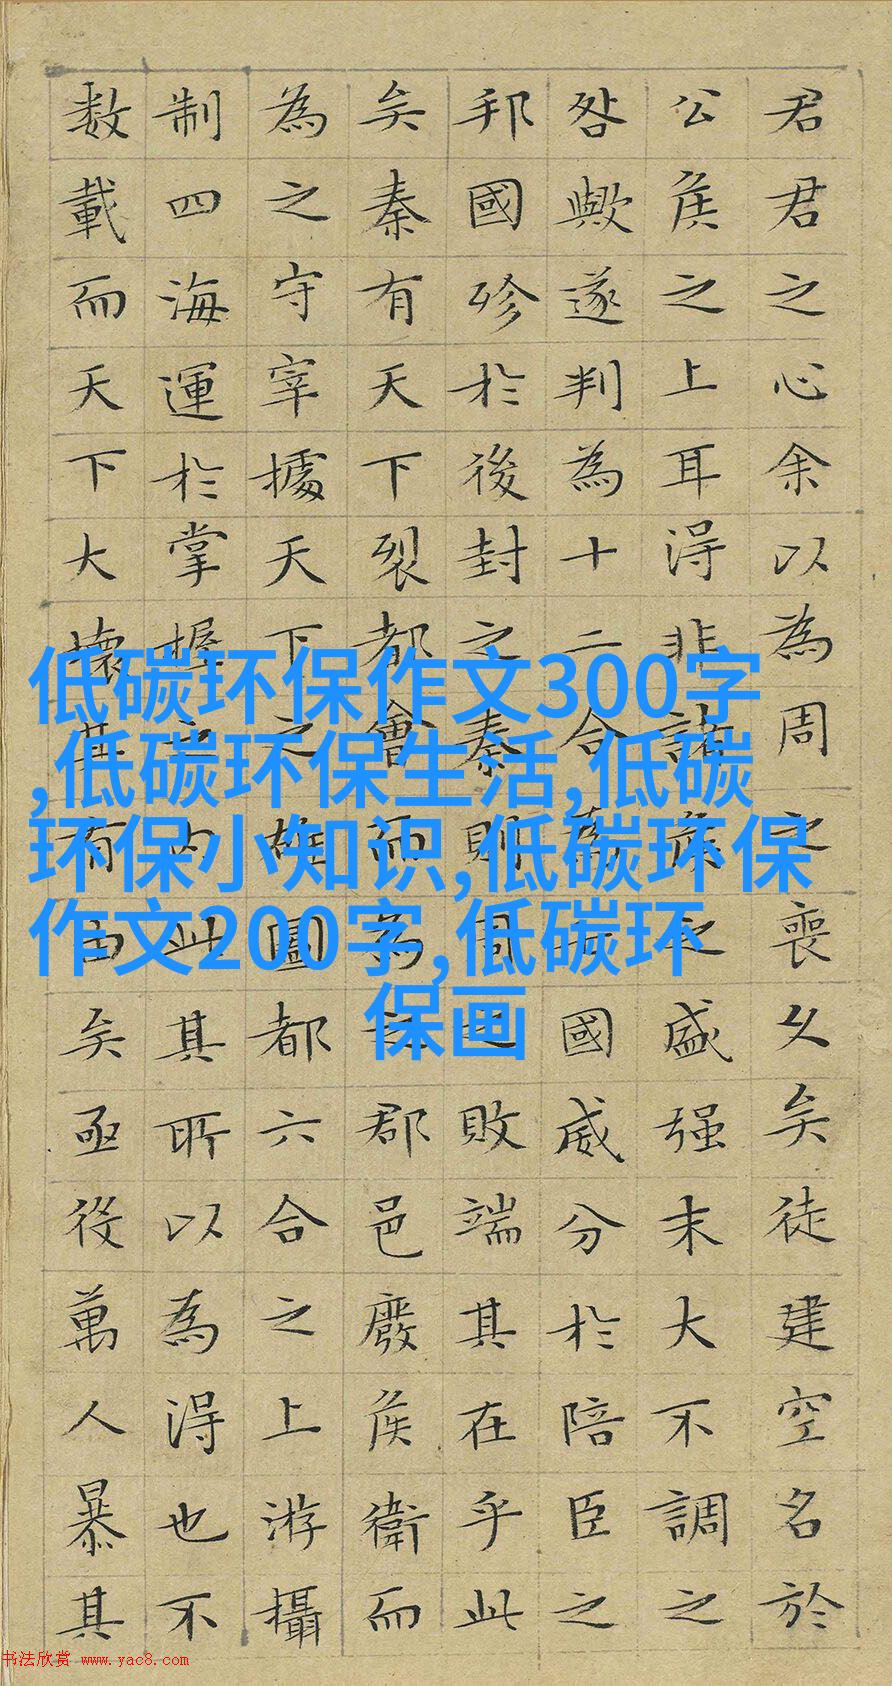 君君之心余以為周之喪久矣徒建空名於
公侯之上耳得非諸侯之盛强末大不調之
咎歟遂判為十二合為七國威分於陪臣之
邦國殄於後封之秦則周之敗端其在乎此
矣秦有天下裂都會而為之郡邑廢侯衛而
為之守宰據天下之雄圖都六合之上游攝
制四海運於掌握之内此其所以為得也不
数載而天下大壞其有由矣亟役萬人暴其
低碳环保作文300字
,低碳环保生活,低碳
环保小知识,低碳环保
作文200字,低碳环
保画
书法欣赏 www.yac8.com